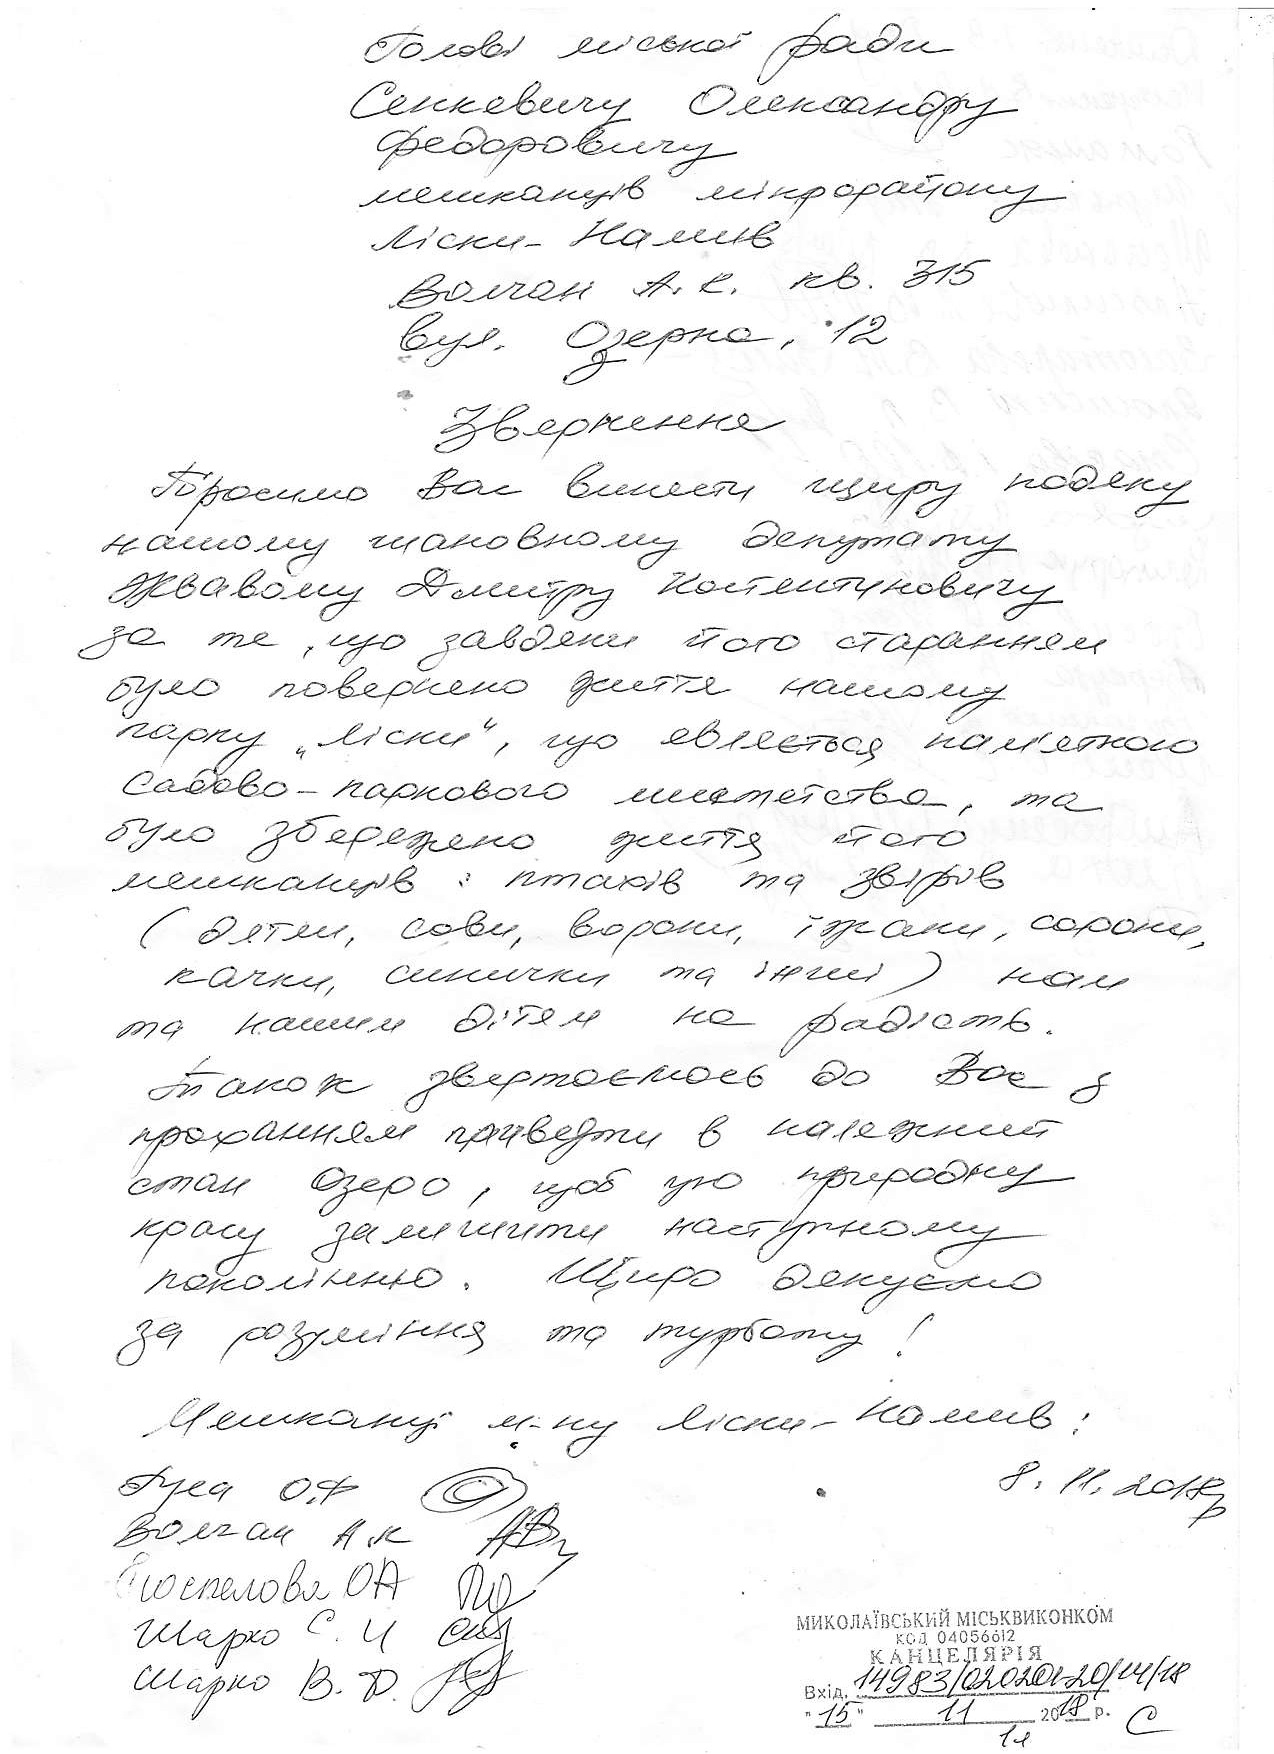 Голові міської ради
Сенкевичу Олександру
Федоровичу
мешканців мікрорайону
Ліски-Намив
Волчан А.К. кв. 315
вул. Озерна, 12
Звернення
Просимо Вас винести щиру подяку
нашому шановному депутату
Жвавому Дмитру Костентуновичу
за те, що завдяки його старанням
було повернено життя нашому
парку „Ліски“, що являється пам'яткою
садово-паркового мистетства, та
було збережено життя його
мешканців: птахів та звірів
(дятли, сови, ворони, їжаки, сороки,
качки, синички та інші) нам
та нашим дітям на радість.
Також звертаємось до Вас з
проханням привезти в належний
стан Озеро, щоб цю природну
красу залишити наступному
поколінню. Щиро дякуємо
за розуміння та турботу!
Мешканці м-ну Ліски-Намив:
8.11.2018р
О.Ф
Волчан А.К
Поспелова ОА
Шарко С. И
Шарко В. Д.
МИКОЛАЇВСЬКИЙ МІСЬКВИКОНКОМ
КОД 04056612
КАНЦЕЛЯРІЯ
Вхід. 14983/020201-20/14/18
"15" 11 2018 р.
1л